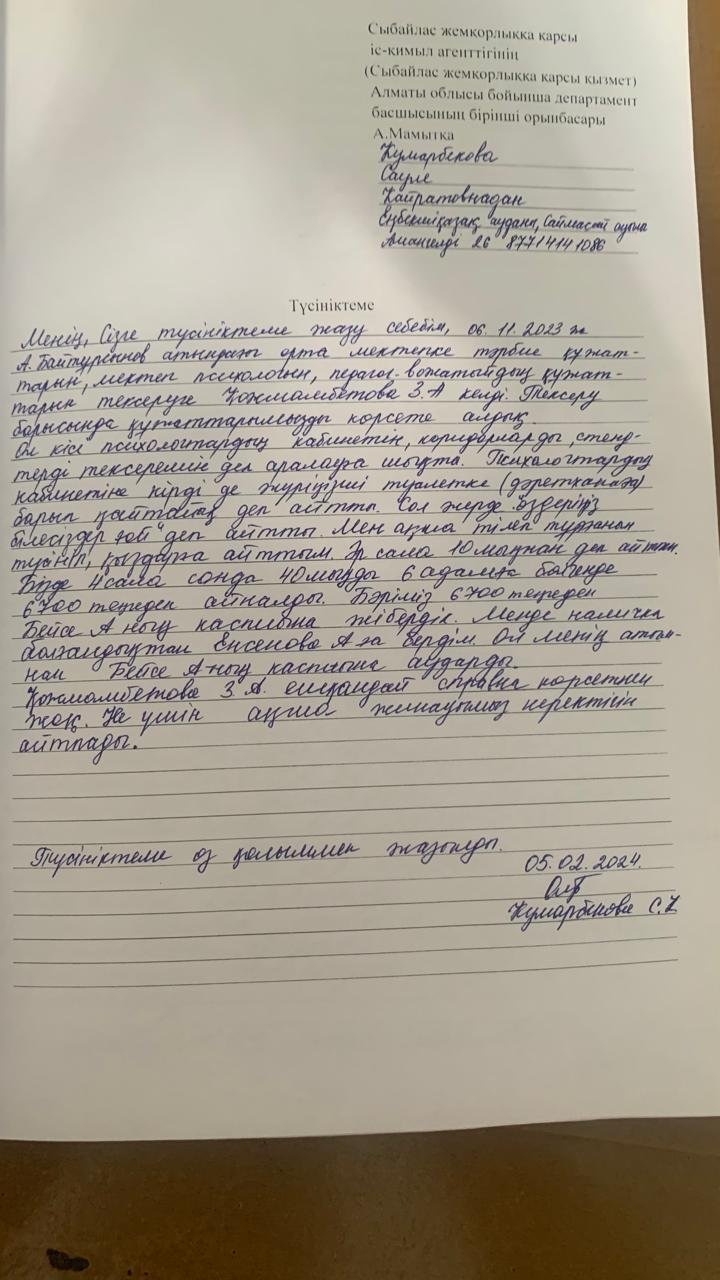 Сыбайлас жемқорлыққа қарсы
іс-қимыл агенттігінің
(Сыбайлас жемқорлыққа қарсы қызмет)
Алматы облысы бойынша департамент
басшысының бірінші орынбасары
А.Мамытқа
Кумарбекова
Сауле
Кайратовнадан
Еңбекшіқазақ ауданы, Саймасай ауылы
Аманкелді 26 87714141086
Түсініктеме
Менің, Сізге түсініктеме жазу себебім, 06.11.2023 ж
А. Байтұрсынов атындағы орта мектепке тәрбие құжат-
тарын, мектеп психологын, педагог-вожатыйдың құжат-
тарын тексеруге Қожамбетова З.А келді. Тексеру
барысында құжаттарымызды көрсете алдық.
Ол кісі психологтардың кабинетін, коридорларды, стенд-
терді тексеремін деп аралауға шықты. Психологтардың
кабинетіне кірді де жүріңізші туалетке (дәретханаға)
барып қайталық деп айтты. Сол жерде "өздеріңіз
білесіздер ғой" деп айтты. Мен ақша тілеп тұрғанын
түсініп, қыздарға айттым. Әр сала 10 мыңнан деп айтқан.
Бізде 4 сала сонда 40 мыңды 6 адамға бөлгенде
6700 теңгеден айналды. Бәріміз 6700 теңгеден
Бейсе А ның каспиына жібердік. Менде наличка
болғандықтан Енсенова А ға бердім. Ол менің атым-
нан Бейсе А ның каспиына аударды.
Қожамбетова З.А. ешқандай справка көрсеткен
жоқ. Не үшін ақша жинауымыз керектігін
айтпады.
Түсініктеме өз қолыммен жазылды.
05.02.2024.
Кумарбекова С.К